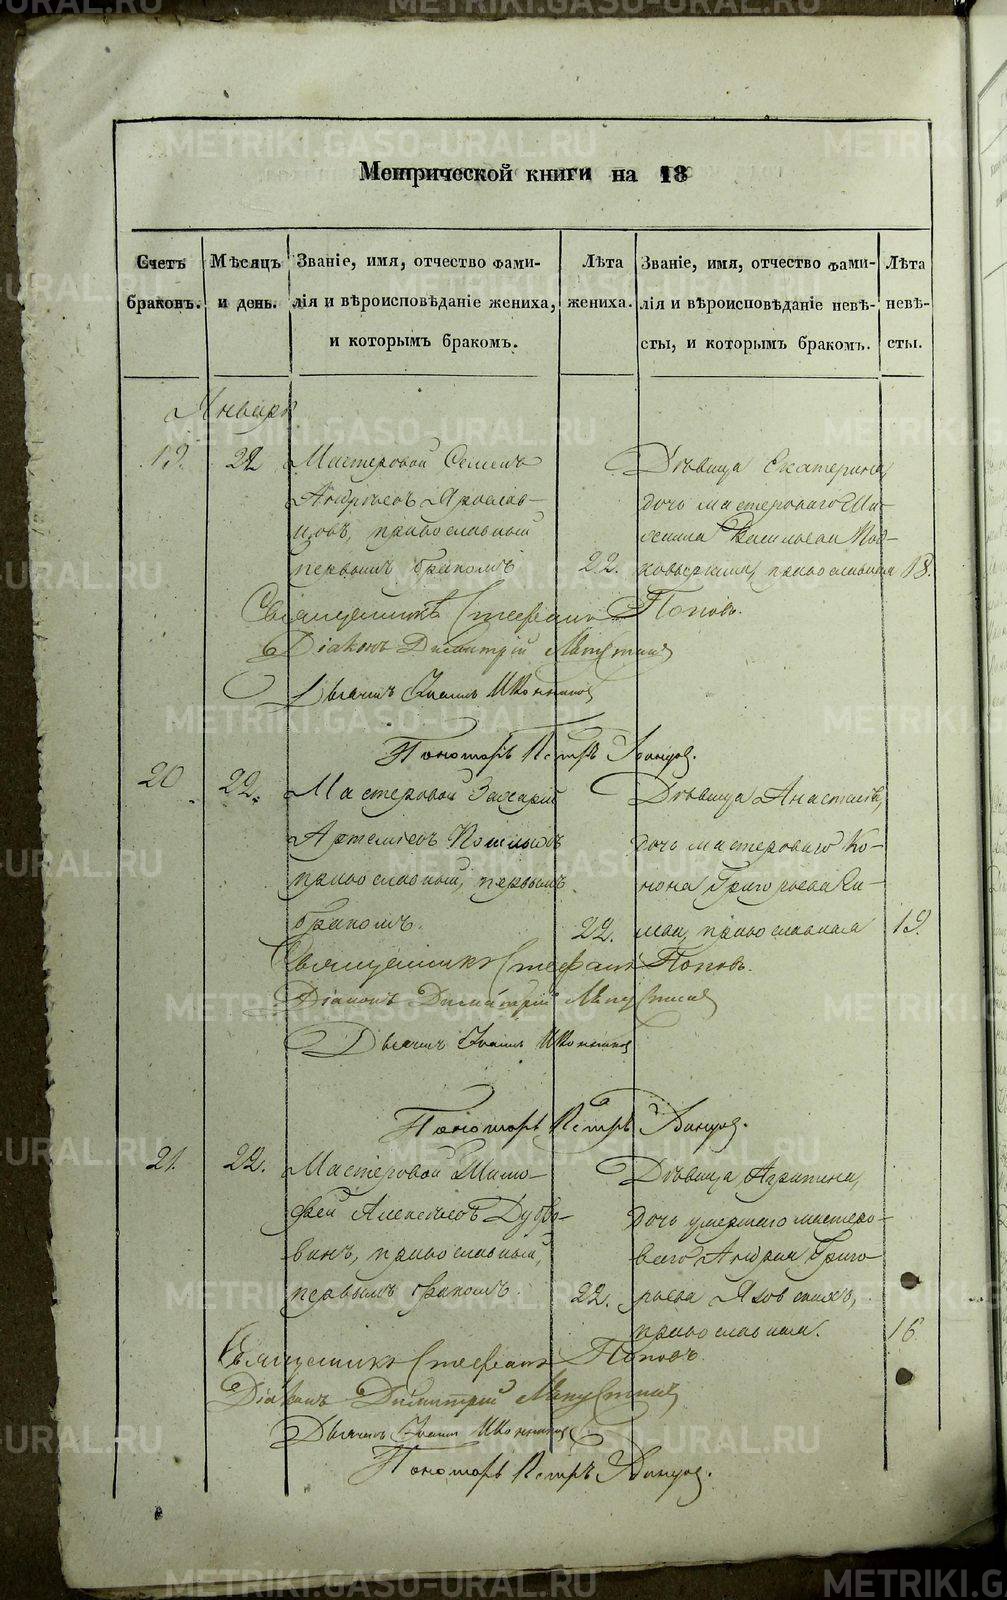 METRIKI.GASO-URAL.RU
Метрической книги на 18
Счетъ браковъ.
Мѣсяцъ и день.
Званіе, имя, отчество фами-
лія и вѣроисповѣданіе жениха,
и которымъ бракомъ.
Лѣта жениха.
Званіе, имя, отчество фами-
лія и вѣроисповѣданіе невѣ-
сты, и которымъ бракомъ.
Лѣта невѣ-
сты.
Январь
19. 22 Мастеровой Семенъ
Андреевъ Ярослав-
цовъ, православный
первымъ бракомъ 22.
Дѣвица Екатерина,
дочь мастероваго Ми-
хаила Васильева
православная 18.
Священникъ Стефанъ Поповъ.
Діаконъ Димитрій
Дьячекъ Іоаннъ Иконников
Пономарь Петръ
20 22. Мастеровой Захарій
Артемьевъ
православный, первымъ
бракомъ. 22.
Дѣвица Анастасія,
дочь мастероваго Ко-
нона Григорьева
православная 19.
Священникъ Стефанъ Поповъ.
Діаконъ Димитрій
Дьячекъ Іоаннъ Иконников
Пономарь Петръ
21. 22. Мастеровой Тимо-
фей Алексеевъ Дубро-
винъ, православный,
первымъ бракомъ. 22.
Дѣвица Агрипина,
дочь умершаго мастеро-
ваго Андрея Григо
рьева
православная. 16
Священникъ Стефанъ Поповъ.
Діаконъ Димитрій
Дьячекъ Іоаннъ Иконников
Пономарь Петръ